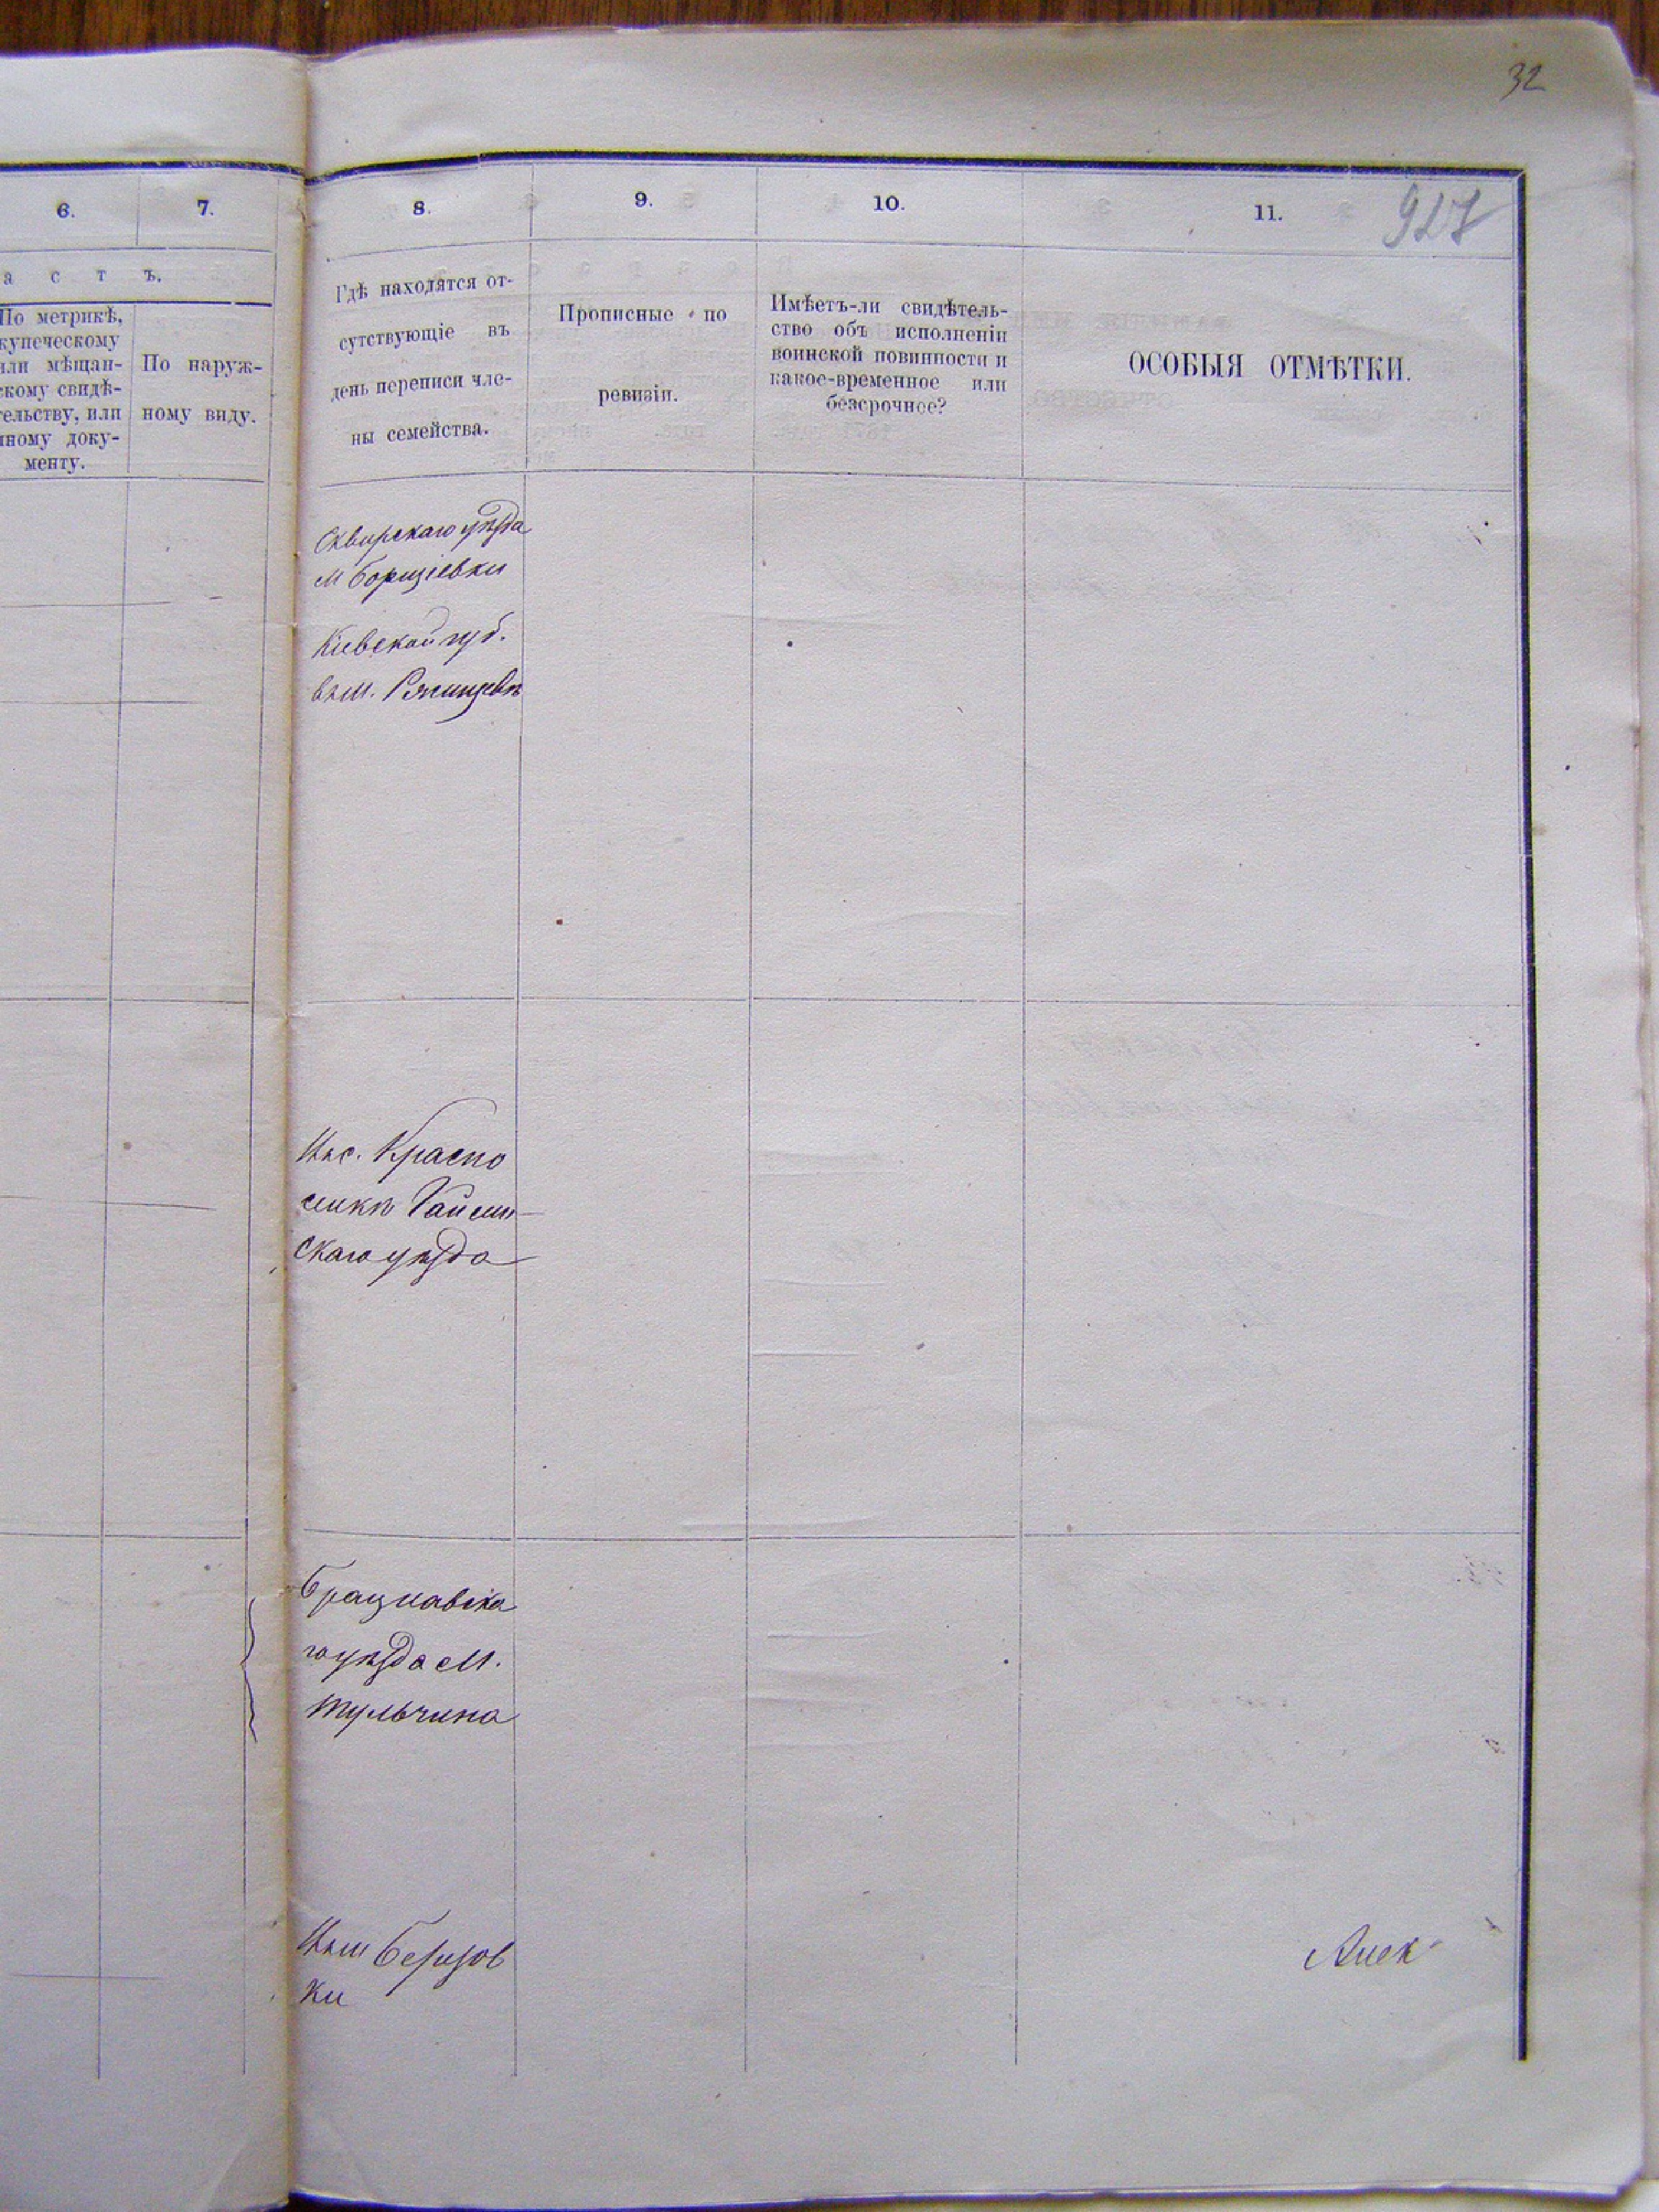 32
6.
7.
8.
9.
10.
11.
927
а с т ъ.
По метрикѣ,
купеческому
или мѣщан-
скому свидѣ-
тельству, или
иному доку-
менту.
По наруж-
ному виду.
Гдѣ находятся от-
сутствующіе въ
день переписи чле-
ны семейства.
Прописные по
ревизіи.
Имѣетъ-ли свидѣтель-
ство объ исполненіи
воинской повинности и
какое-временное или
безсрочное?
ОСОБЫЯ ОТМѢТКИ.
Сквирскаго уѣзда
м Борщіевки
Кіевской губ.
въ м. Ржищевѣ
Въ с. Красно
силкѣ Гайсин
скаго уѣзда
Брацлавска
го уѣзда М.
Тульчина
Въ м Березов
ки